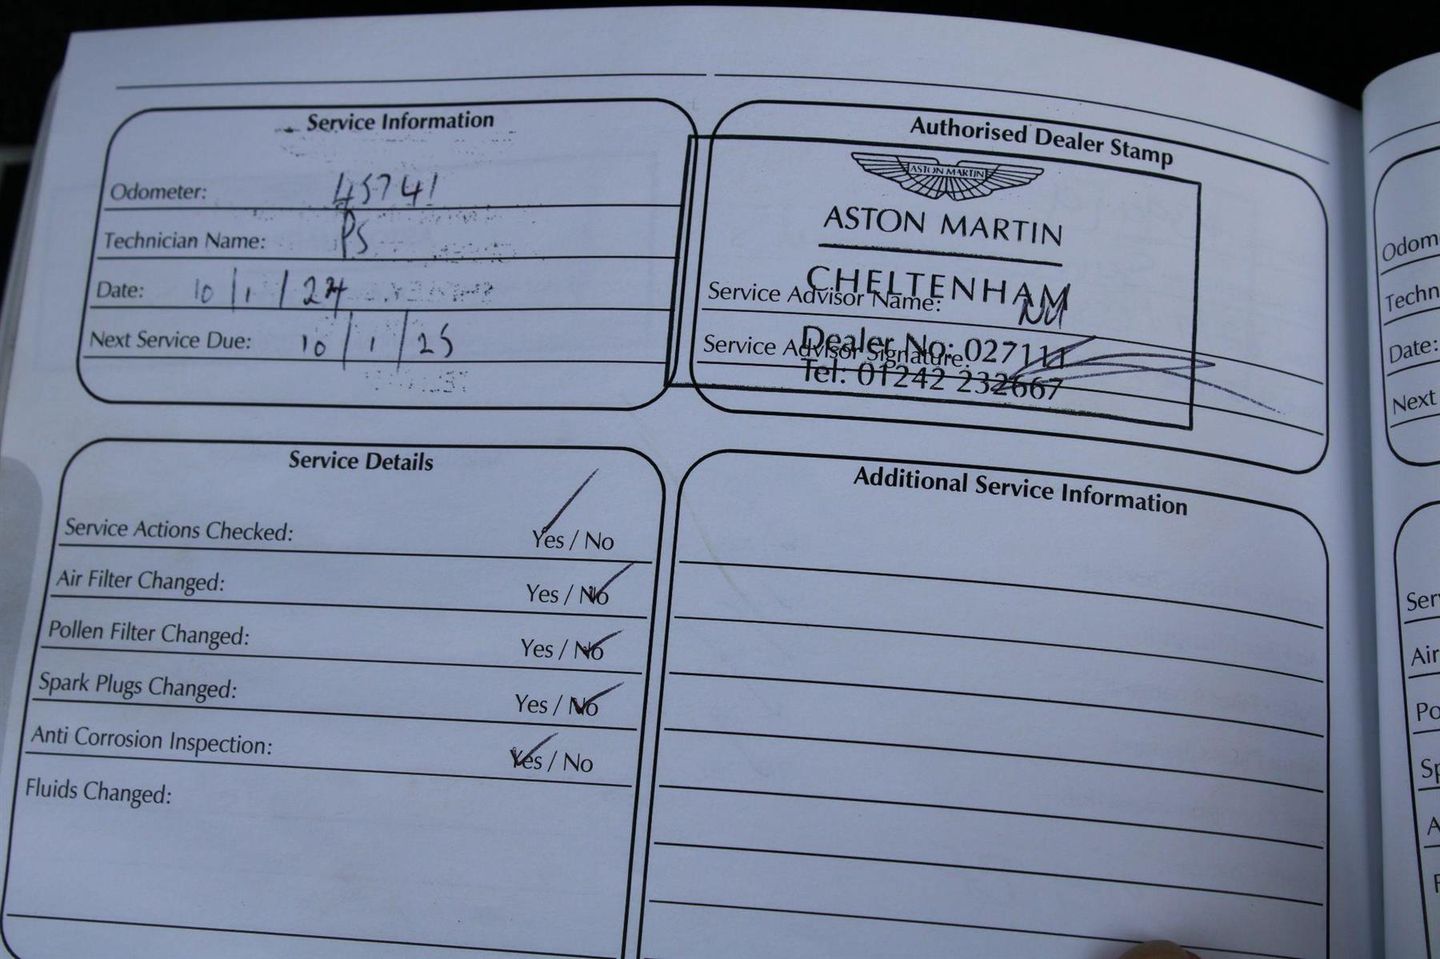 Service Information
Odometer: 45741
Technician Name: PS
Date: 10/1/24
Next Service Due: 10/1/25
Authorised Dealer Stamp
ASTON MARTIN
ASTON MARTIN
CHELTENHAM
Service Advisor Name:
Dealer No: 027111
Service Advisor Signature:
Tel: 01242 232667
Service Details
Service Actions Checked: Yes / No
Air Filter Changed: Yes / No
Pollen Filter Changed: Yes / No
Spark Plugs Changed: Yes / No
Anti Corrosion Inspection: Yes / No
Fluids Changed:
Additional Service Information
Odom
Techn
Date:
Next
Ser
Air
Po
Sp
A
F